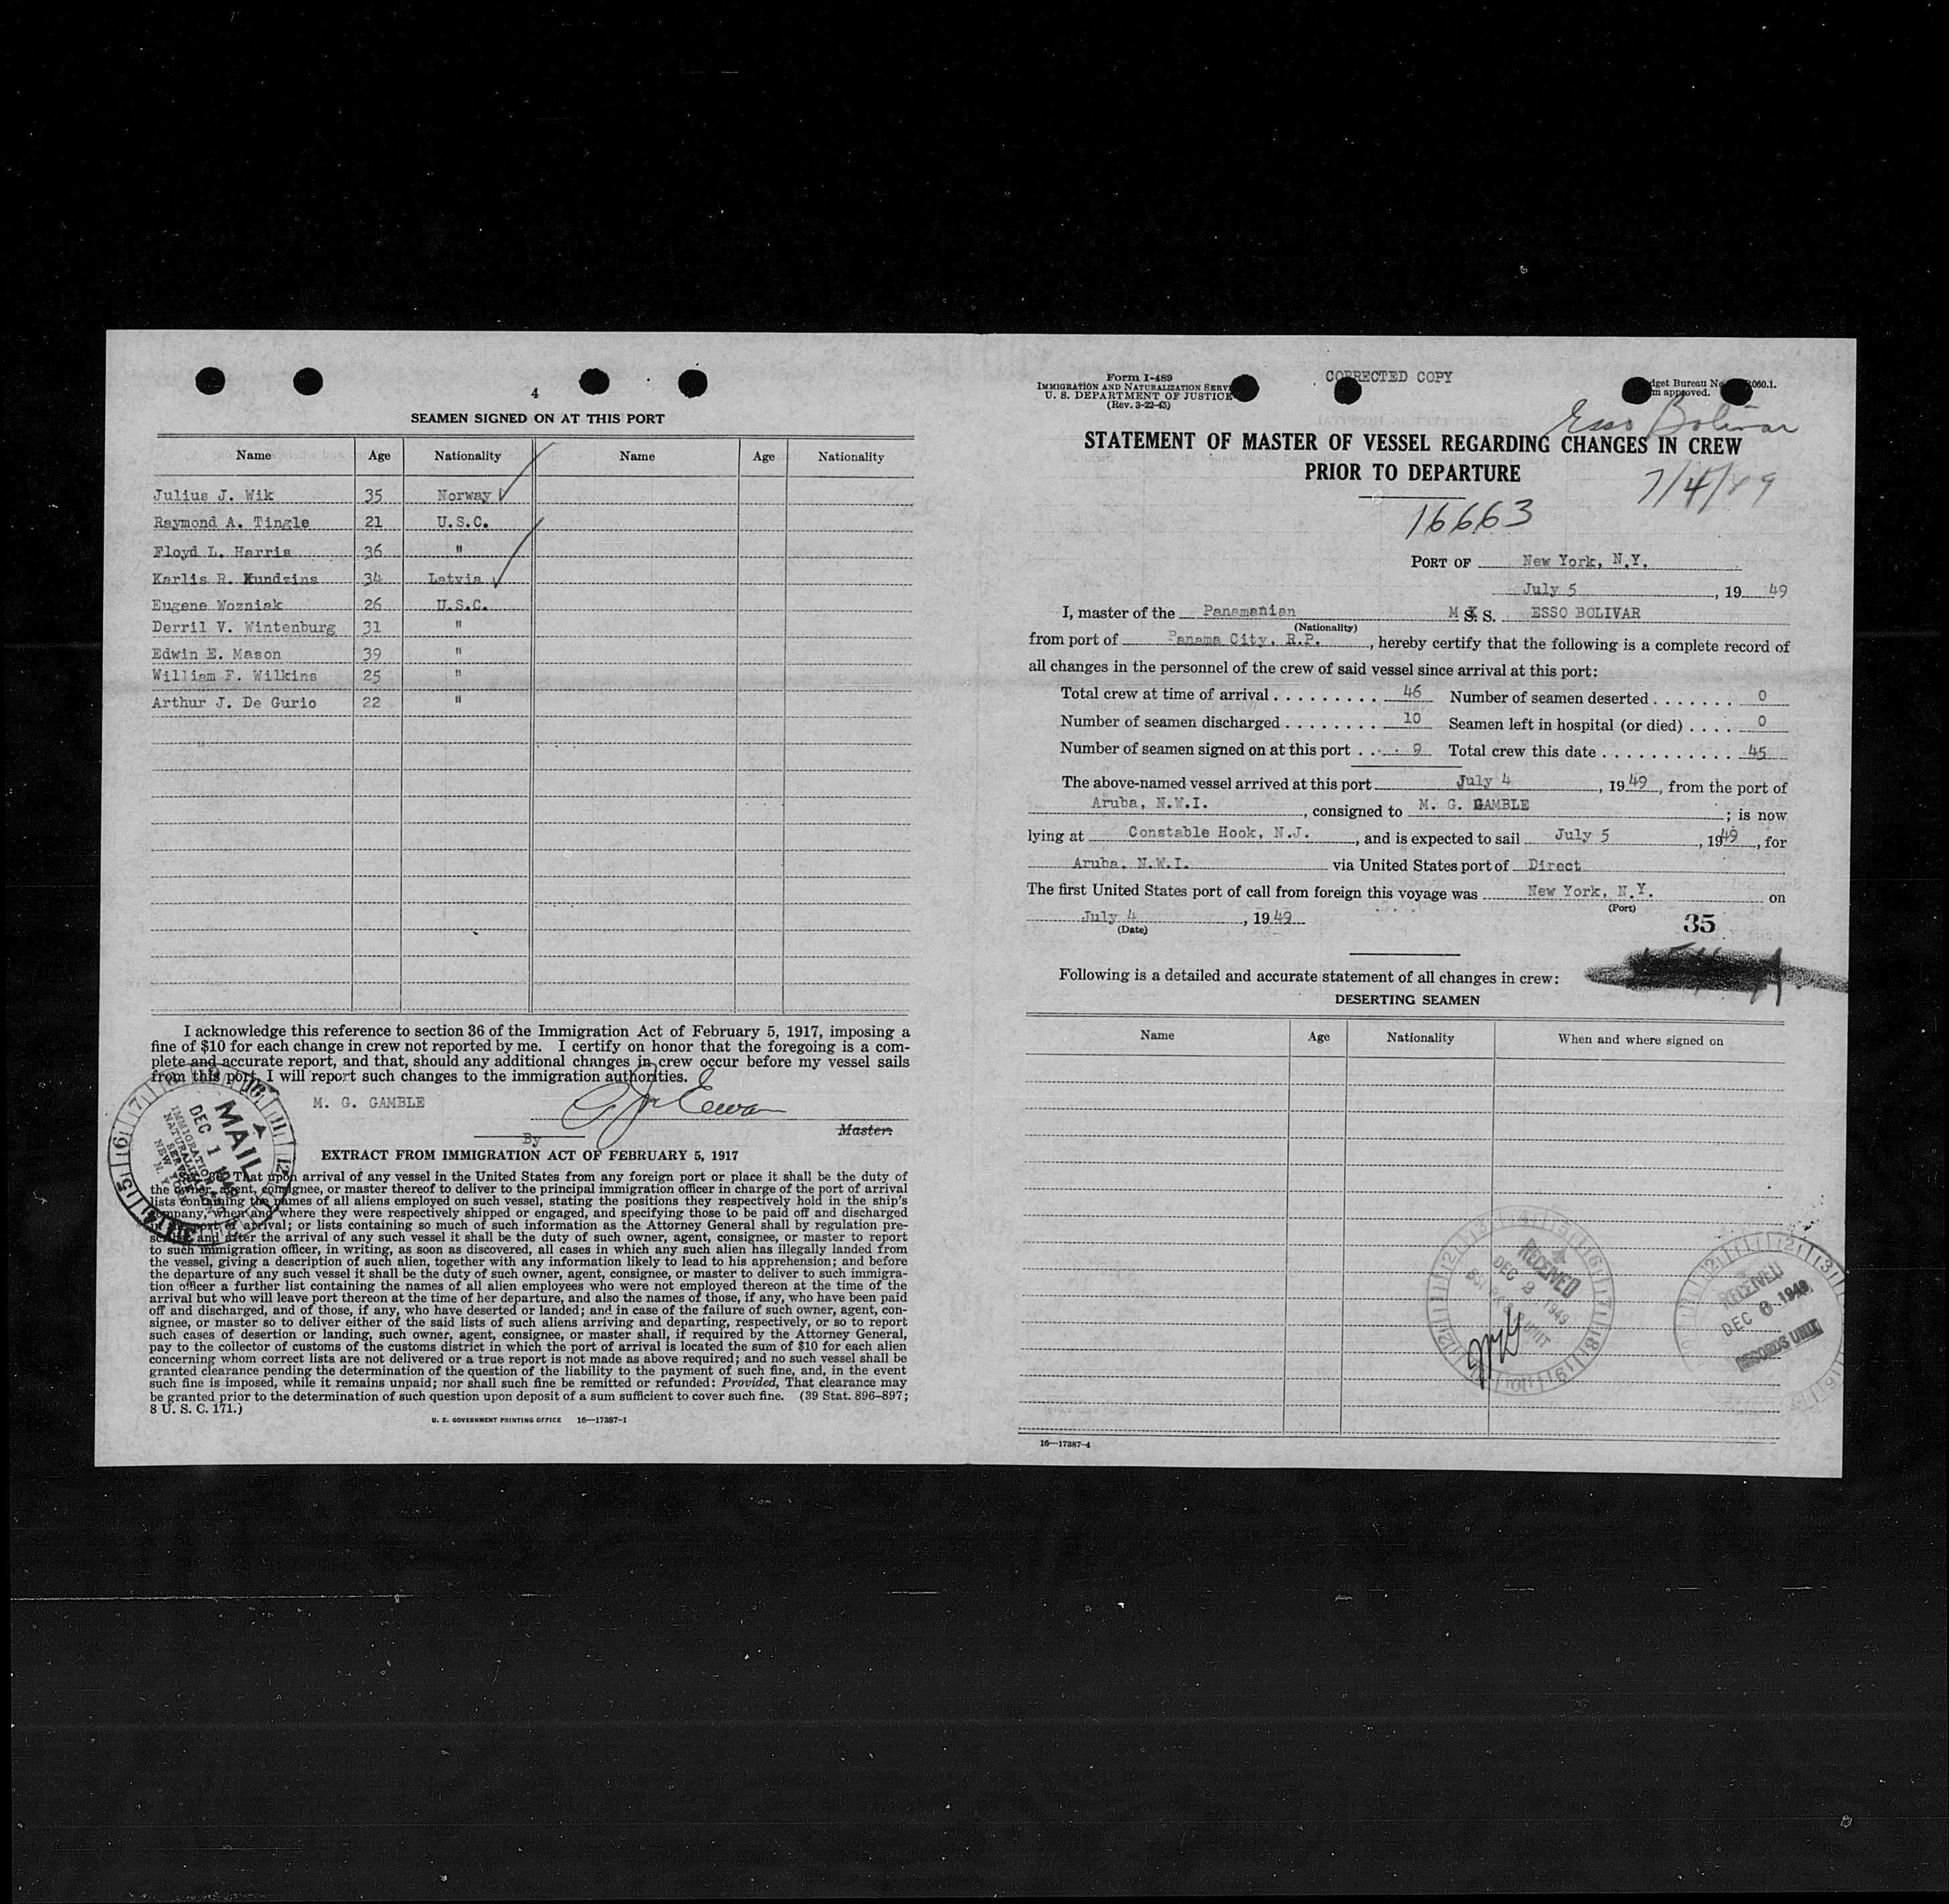 4
SEAMEN SIGNED ON AT THIS PORT
Name Age Nationality Name Age Nationality
Julius J. Wik 35 Norway
Raymond A. Tingle 21 U.S.C.
Floyd L. Harris 36 "
Karlis R. Kundzins 34 Latvia
Eugene Wozniak 26 U.S.C.
Derril V. Wintenburg 31 "
Edwin E. Mason 39 "
William F. Wilkins 25 "
Arthur J. De Gurio 22 "
I acknowledge this reference to section 36 of the Immigration Act of February 5, 1917, imposing a
fine of $10 for each change in crew not reported by me. I certify on honor that the foregoing is a com-
plete and accurate report, and that, should any additional changes in crew occur before my vessel sails
from this port, I will report such changes to the immigration authorities.
M. G. GAMBLE
Master.
By
MAIL
DEC 1
IMMIGRATION
NEW
EXTRACT FROM IMMIGRATION ACT OF FEBRUARY 5, 1917
Sec. 36. That upon arrival of any vessel in the United States from any foreign port or place it shall be the duty of
the owner, agent, consignee, or master thereof to deliver to the principal immigration officer in charge of the port of arrival
lists containing the names of all aliens employed on such vessel, stating the positions they respectively hold in the ship's
company, when and where they were respectively shipped or engaged, and specifying those to be paid off and discharged
in the port of arrival; or lists containing so much of such information as the Attorney General shall by regulation pre-
scribe; and after the arrival of any such vessel it shall be the duty of such owner, agent, consignee, or master to report
to such immigration officer, in writing, as soon as discovered, all cases in which any such alien has illegally landed from
the vessel, giving a description of such alien, together with any information likely to lead to his apprehension; and before
the departure of any such vessel it shall be the duty of such owner, agent, consignee, or master to deliver to such immigra-
tion officer a further list containing the names of all alien employees who were not employed thereon at the time of the
arrival but who will leave port thereon at the time of her departure, and also the names of those, if any, who have been paid
off and discharged, and of those, if any, who have deserted or landed; and in case of the failure of such owner, agent, con-
signee, or master so to deliver either of the said lists of such aliens arriving and departing, respectively, or so to report
such cases of desertion or landing, such owner, agent, consignee, or master shall, if required by the Attorney General,
pay to the collector of customs of the customs district in which the port of arrival is located the sum of $10 for each alien
concerning whom correct lists are not delivered or a true report is not made as above required; and no such vessel shall be
granted clearance pending the determination of the question of the liability to the payment of such fine, and, in the event
such fine is imposed, while it remains unpaid; nor shall such fine be remitted or refunded: Provided, That clearance may
be granted prior to the determination of such question upon deposit of a sum sufficient to cover such fine. (39 Stat. 896–897;
8 U. S. C. 171.)
U. S. GOVERNMENT PRINTING OFFICE 16—17387-1
Form I-489
IMMIGRATION AND NATURALIZATION SERV
U. S. DEPARTMENT OF JUSTICE
(Rev. 3-22-45)
CORRECTED COPY
dget Bureau No. 060.1.
m approved.
Esso Bolivar
STATEMENT OF MASTER OF VESSEL REGARDING CHANGES IN CREW
PRIOR TO DEPARTURE
7/4/49
16663
PORT OF New York, N.Y.
July 5, 1949
I, master of the Panamanian M S. S. ESSO BOLIVAR
(Nationality)
from port of Panama City, R.P., hereby certify that the following is a complete record of
all changes in the personnel of the crew of said vessel since arrival at this port:
Total crew at time of arrival 46 Number of seamen deserted 0
Number of seamen discharged 10 Seamen left in hospital (or died) 0
Number of seamen signed on at this port 9 Total crew this date 45
The above-named vessel arrived at this port July 4, 1949, from the port of
Aruba, N.W.I., consigned to M. G. GAMBLE; is now
lying at Constable Hook, N.J., and is expected to sail July 5, 1949, for
Aruba, N.W.I. via United States port of Direct
The first United States port of call from foreign this voyage was New York, N.Y. on
(Port)
July 4, 1949
(Date)
35
Following is a detailed and accurate statement of all changes in crew:
DESERTING SEAMEN
Name Age Nationality When and where signed on
RECEIVED
DEC 2 1949
UNIT
RECEIVED
DEC 6 1949
RECORDS UNIT
16—17387-4